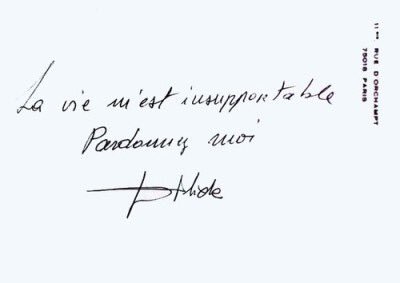 La vie m'est insupportable
Pardonnez moi
Dalida
11 bis RUE D'ORCHAMPT
75018 PARIS